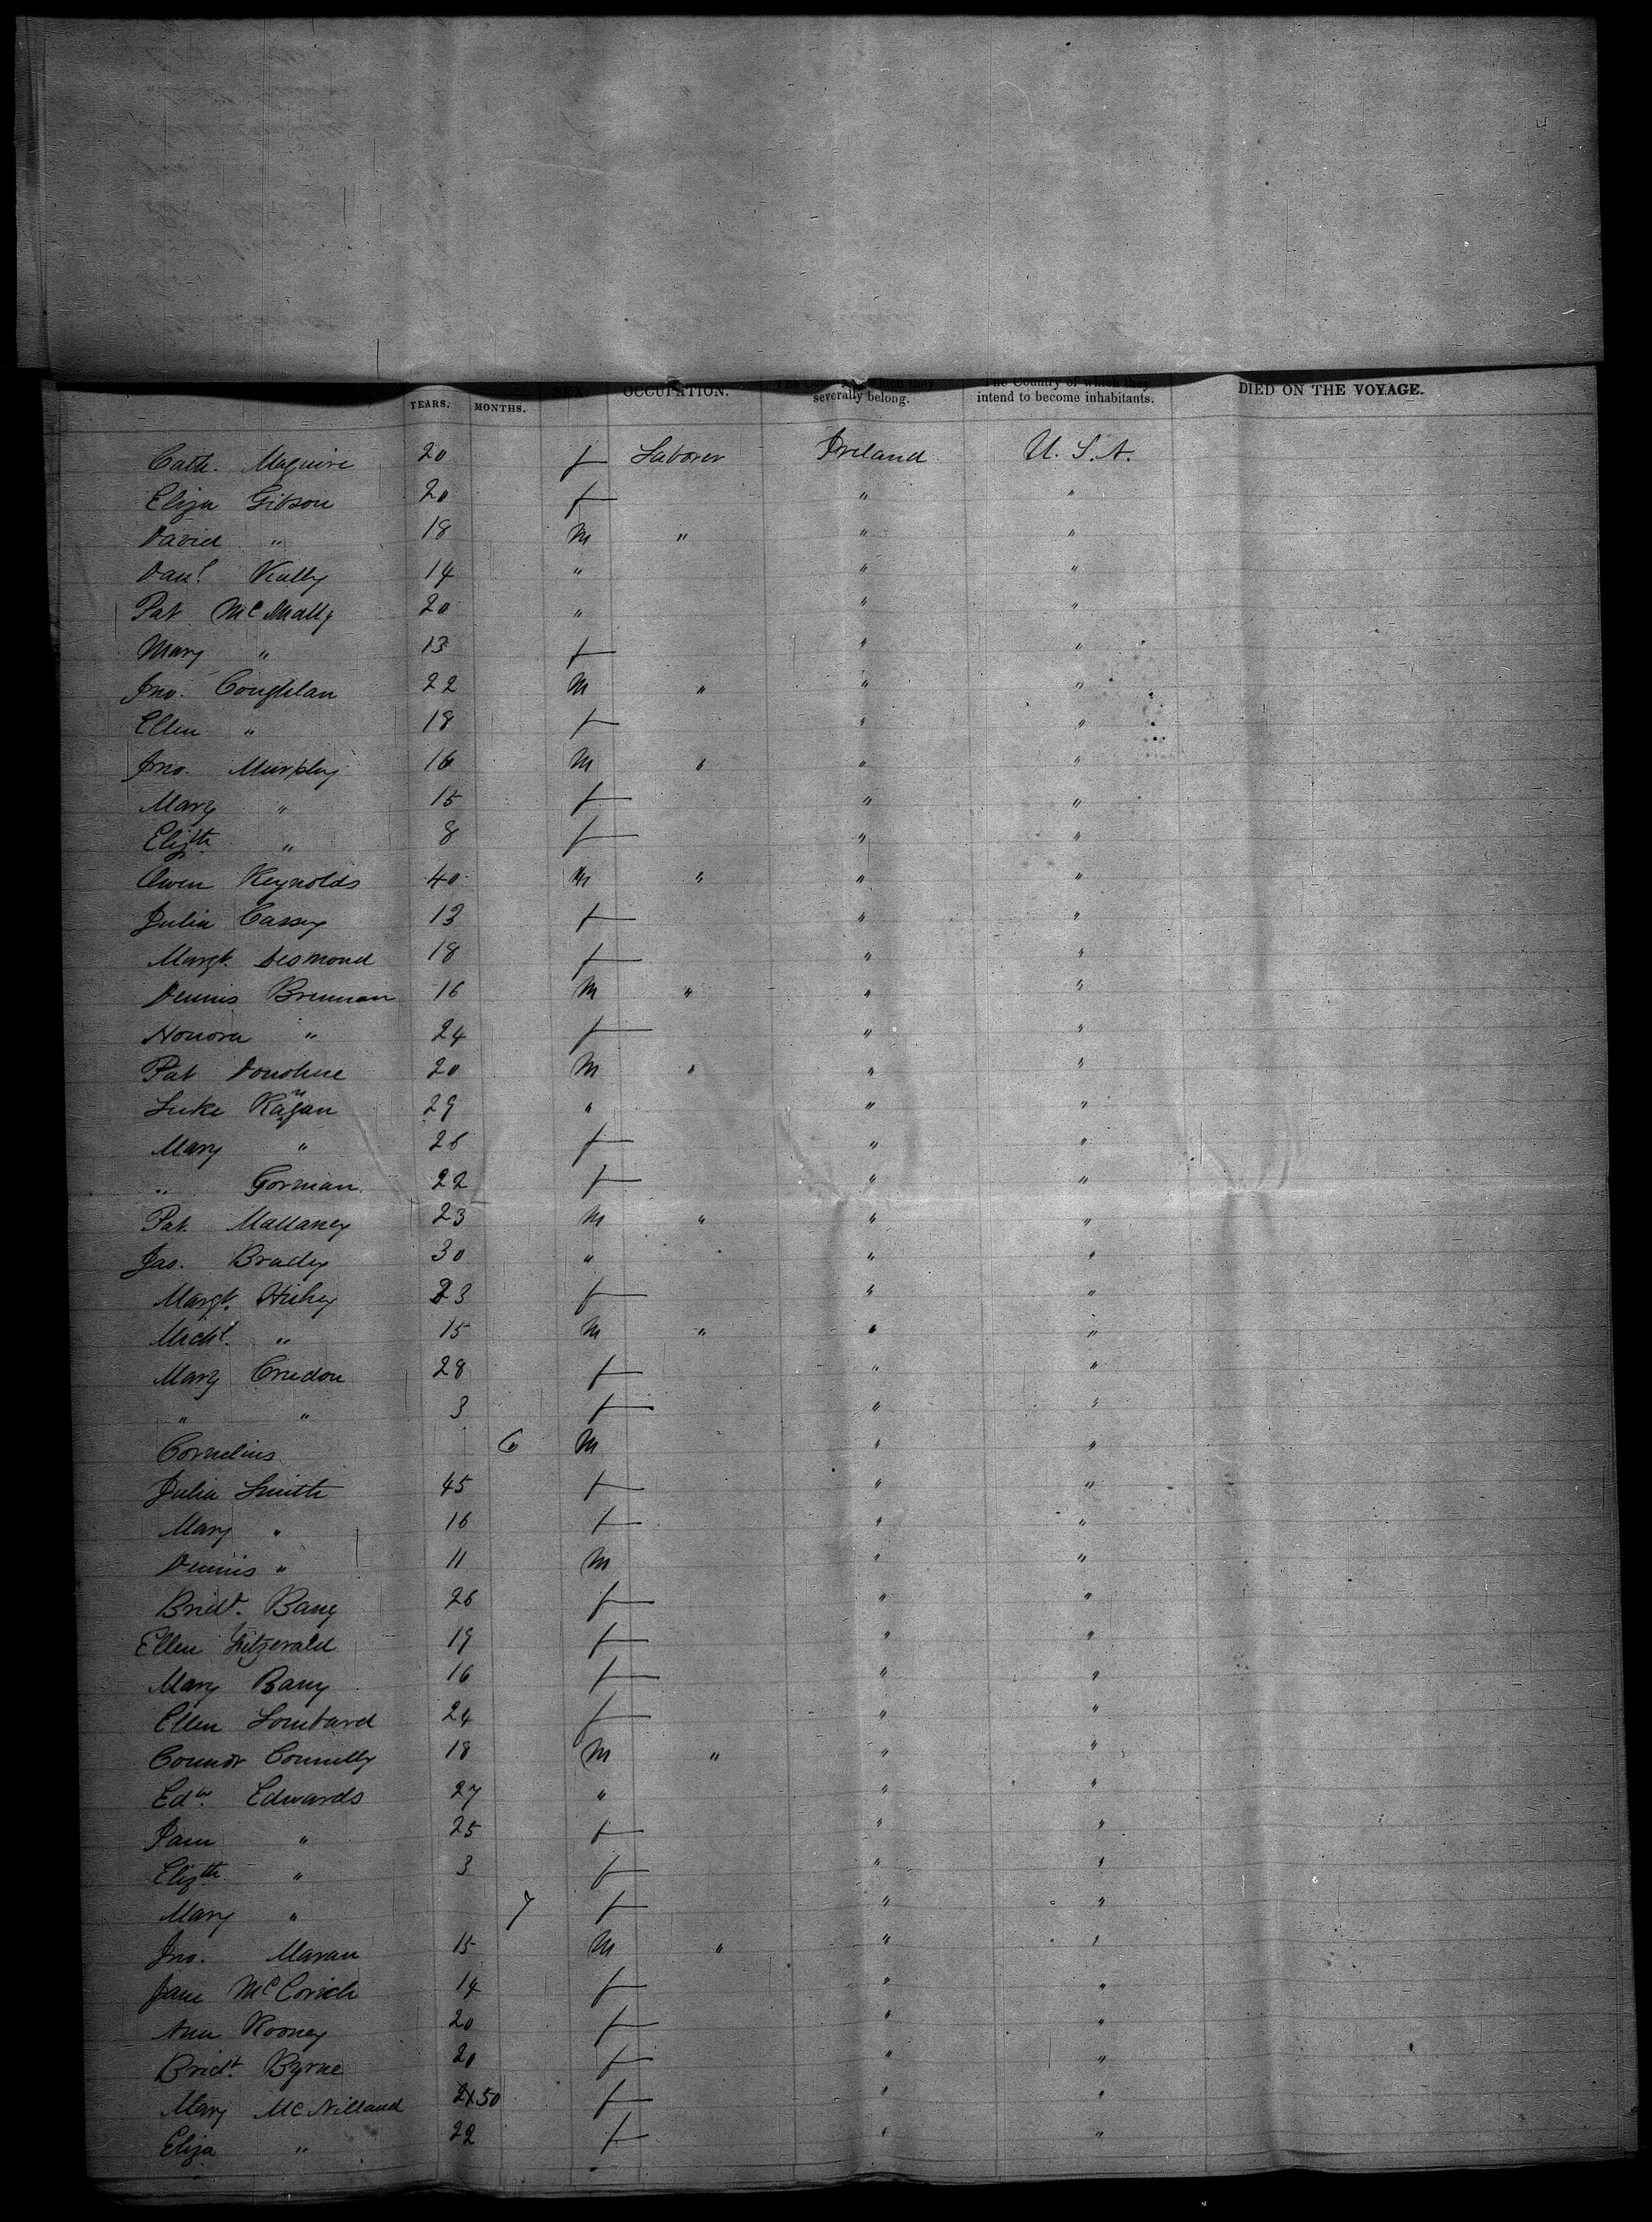 YEARS. MONTHS. SEX. OCCUPATION. The Country to which they severally belong. The Country of which they intend to become inhabitants. DIED ON THE VOYAGE.
Cath. Maguire 20 f Laborer Ireland U. S. A.
Eliza Gibson 20 f " "
David " 18 M " " "
Danl. Kielly 14 " " "
Pat McNally 20 " " "
Mary " 13 f " "
Jno. Coughlan 22 M " " "
Ellen " 18 f " "
Jno. Murphy 16 M " " "
Mary " 15 f " "
Elizth " 8 f " "
Owen Reynolds 40 M " " "
Julia Cassey 13 f " "
Margt. Desmond 18 f " "
Dennis Brennan 16 M " " "
Honora " 24 f " "
Pat Donohue 20 M " " "
Luke 29 " " "
Mary " 26 f " "
" Gorman 22 f " "
Pat. Mallaney 23 M " " "
Jas. Brady 30 " " "
Margt. Hickey 23 f " "
Michl. " 15 M " " "
Mary Creedon 28 f " "
" " 3 f " "
Cornelius 6 M " "
Julia Smith 45 f " "
Mary " 16 f " "
Dennis " 11 M " "
Bridt. Barry 26 f " "
Ellen Fitzgerald 19 f " "
Mary Barry 16 f " "
Ellen Lombard 24 f " "
Connor Connelly 18 M " " "
Edw. Edwards 27 " " "
Jane " 25 f " "
Elizth " 3 f " "
Mary " 7 f " "
Jno. Maran 15 M " " "
Jane 14 f " "
Ann Rooney 20 f " "
Bridt. Byrne 20 f " "
Mary McNilland 50 f " "
Eliza " 22 f " "